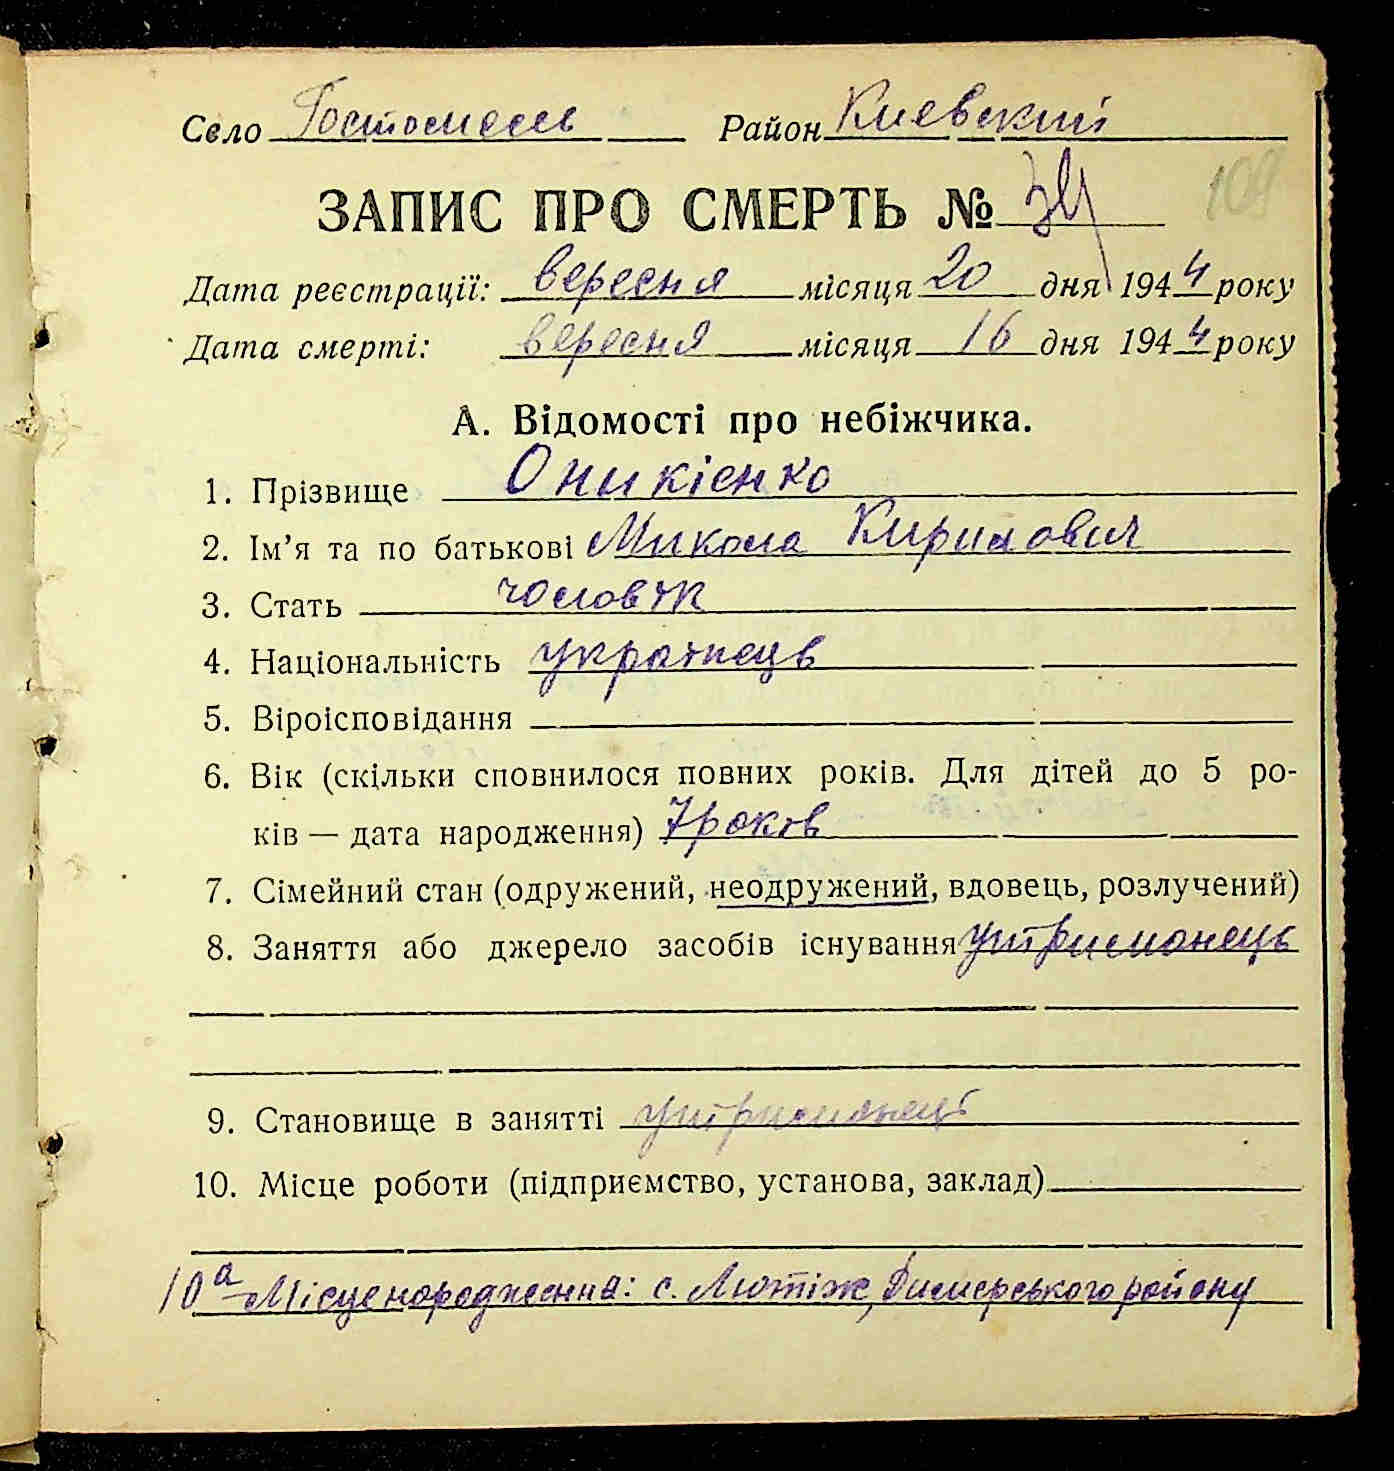 Село Гостомель Район Киевский
109
ЗАПИС ПРО СМЕРТЬ №
Дата реєстрації: вересня місяця 20 дня 1944 року
Дата смерті: вересня місяця 16 дня 1944 року
А. Відомості про небіжчика.
1. Прізвище Оникієнко
2. Ім’я та по батькові Микола Кирилович
3. Стать чоловік
4. Національність українець
5. Віроісповідання
6. Вік (скільки сповнилося повних років. Для дітей до 5 ро-
ків — дата народження) 7 років
7. Сімейний стан (одружений, неодружений, вдовець, розлучений)
8. Заняття або джерело засобів існування утриманець
9. Становище в занятті утриманець
10. Місце роботи (підприємство, установа, заклад)
10а Місце народження: с. Лютіж, Димерського району